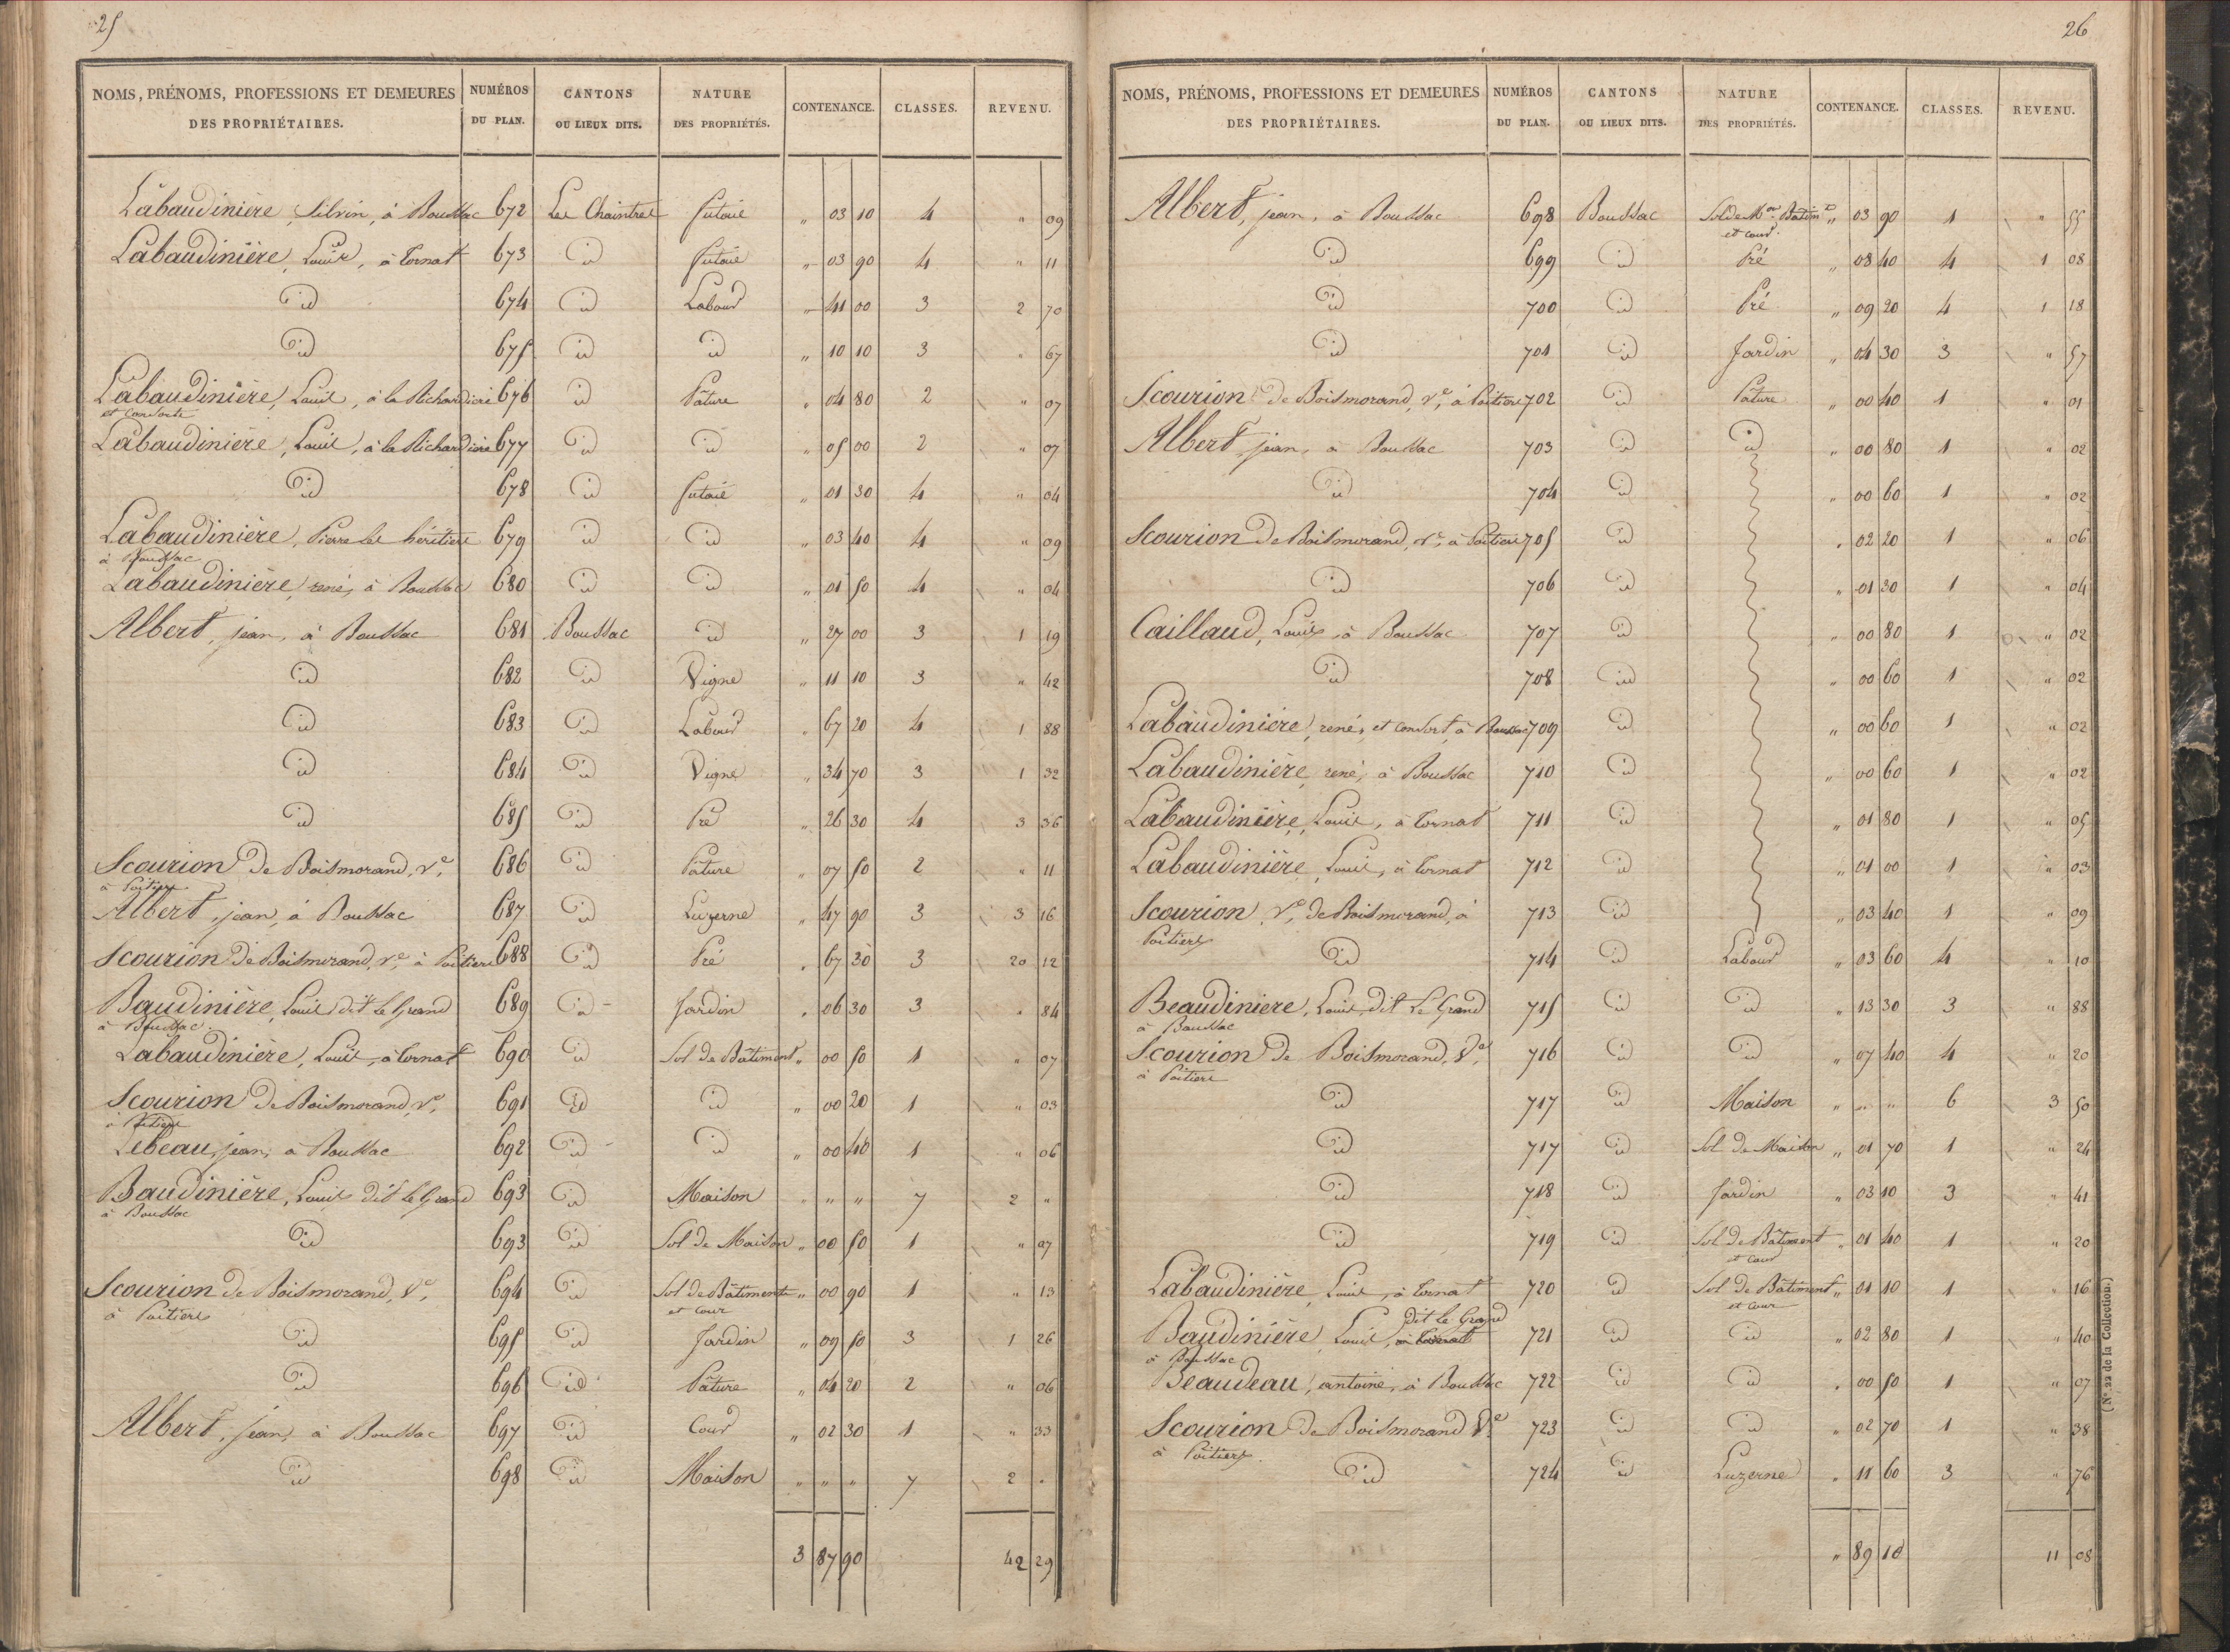 25
NOMS, PRÉNOMS, PROFESSIONS ET DEMEURES DES PROPRIÉTAIRES. NUMÉROS DU PLAN. CANTONS OU LIEUX DITS. NATURE DES PROPRIÉTÉS. CONTENANCE. CLASSES. REVENU.
Labaudinière, Silvin, à Boussac 672 Les Chaintres futaie " 03 10 4 " 09
Labaudinière, Louis, à Tornat 673 id futaie " 03 90 4 " 11
id 674 id Labour " 41 00 3 2 70
id 675 id id " 10 10 3 " 67
Labaudinière, Louis, à la Richardière 676 id Pâture " 04 80 2 " 07
et consorts
Labaudinière, Louis, à la Richardière 677 id id " 05 00 2 " 07
id 678 id futaie " 01 30 4 " 04
Labaudinière, Pierre les héritiers 679 id id " 03 40 4 " 09
à Boussac
Labaudinière, rené, à Boussac 680 id id " 01 50 4 " 04
Albert, jean, à Boussac 681 Boussac id " 27 00 3 1 19
id 682 id Vigne " 11 10 3 " 42
id 683 id Labour " 67 20 4 1 88
id 684 id Vigne " 34 70 3 1 32
id 685 id Pré " 26 30 4 3 36
Scourion de Boismorand, Ve, 686 id Pâture " 07 50 2 " 11
à Poitiers
Albert, jean, à Boussac 687 id Luzerne " 47 90 3 3 16
Scourion de Boismorand, Ve, à Poitiers 688 id Pré " 67 30 3 20 12
Baudinière, Louis dit le Grand 689 id Jardin " 06 30 3 " 84
à Boussac.
Labaudinière, Louis, à Tornat 690 id Sol de Bâtiment " 00 50 1 " 07
Scourion de Boismorand, Ve, 691 id id " 00 20 1 " 03
à Poitiers
Lebeau, jean, à Boussac 692 id id " 00 40 1 " 06
Baudinière, Louis dit le Grand 693 id Maison " " " 7 2 "
à Boussac
id 693 id Sol de Maison " 00 50 1 " 07
Scourion de Boismorand, Ve, 694 id Sol de Bâtiments " 00 90 1 " 13
à Poitiers et cour
id 695 id Jardin " 09 50 3 1 26
id 696 id Pâture " 04 20 2 " 06
Albert, jean, à Boussac 697 id Cour " 02 30 1 " 33
id 698 id Maison " " " 7 2 "
3 87 90 42 29
26
NOMS, PRÉNOMS, PROFESSIONS ET DEMEURES DES PROPRIÉTAIRES. NUMÉROS DU PLAN. CANTONS OU LIEUX DITS. NATURE DES PROPRIÉTÉS. CONTENANCE. CLASSES. REVENU.
Albert, jean, à Boussac 698 Boussac Sol de Mon Batimt " 03 90 1 " 55
et cour.
id 699 id Pré " 08 40 4 1 08
id 700 id Pré " 09 20 4 1 18
id 701 id Jardin " 04 30 3 " 57
Scourion de Boismorand, Ve, à Poitiers 702 id Pâture " 00 40 1 " 01
Albert, jean, à Boussac 703 id id " 00 80 1 " 02
id 704 id " 00 60 1 " 02
Scourion de Boismorand, Ve, à Poitiers 705 id " 02 20 1 " 06
id 706 id " 01 30 1 " 04
Caillaud, Louis, à Boussac 707 id " 00 80 1 " 02
id 708 id " 00 60 1 " 02
Labaudinière, rené, et consort, à Boussac 709 id " 00 60 1 " 02
Labaudinière, rené, à Boussac 710 id " 00 60 1 " 02
Labaudinière, Louis, à Tornat 711 id " 01 80 1 " 05
Labaudinière, Louis, à Tornat 712 id " 01 00 1 " 03
Scourion, Ve, de Boismorand, à 713 id " 03 40 1 " 09
Poitiers
id 714 id Labour " 03 60 4 " 10
Beaudiniere, Louis, dit Le Grand 715 id id " 13 30 3 " 88
à Boussac
Scourion de Boismorand, Ve, 716 id id " 07 40 4 " 20
à Poitiers
id 717 id Maison " " " 6 3 50
id 717 id Sol de Maison " 01 70 1 " 24
id 718 id Jardin " 03 10 3 " 41
id 719 id Sol de Bâtiment " 01 40 1 " 20
et cour
Labaudinière, Louis, à Tornat 720 id Sol de Bâtiment " 01 10 1 " 16
et cour
dit le Grand
Baudinière, Louis, à Tornat 721 id id " 02 80 1 " 40
à Boussac
Beaudeau, antoine, à Boussac 722 id id " 00 50 1 " 07
Scourion de Boismorand Ve 723 id id " 02 70 1 " 38
à Poitiers.
id 724 id Luzerne " 11 60 3 " 76
" 89 10 11 08
(N° 22 de la Collection.)